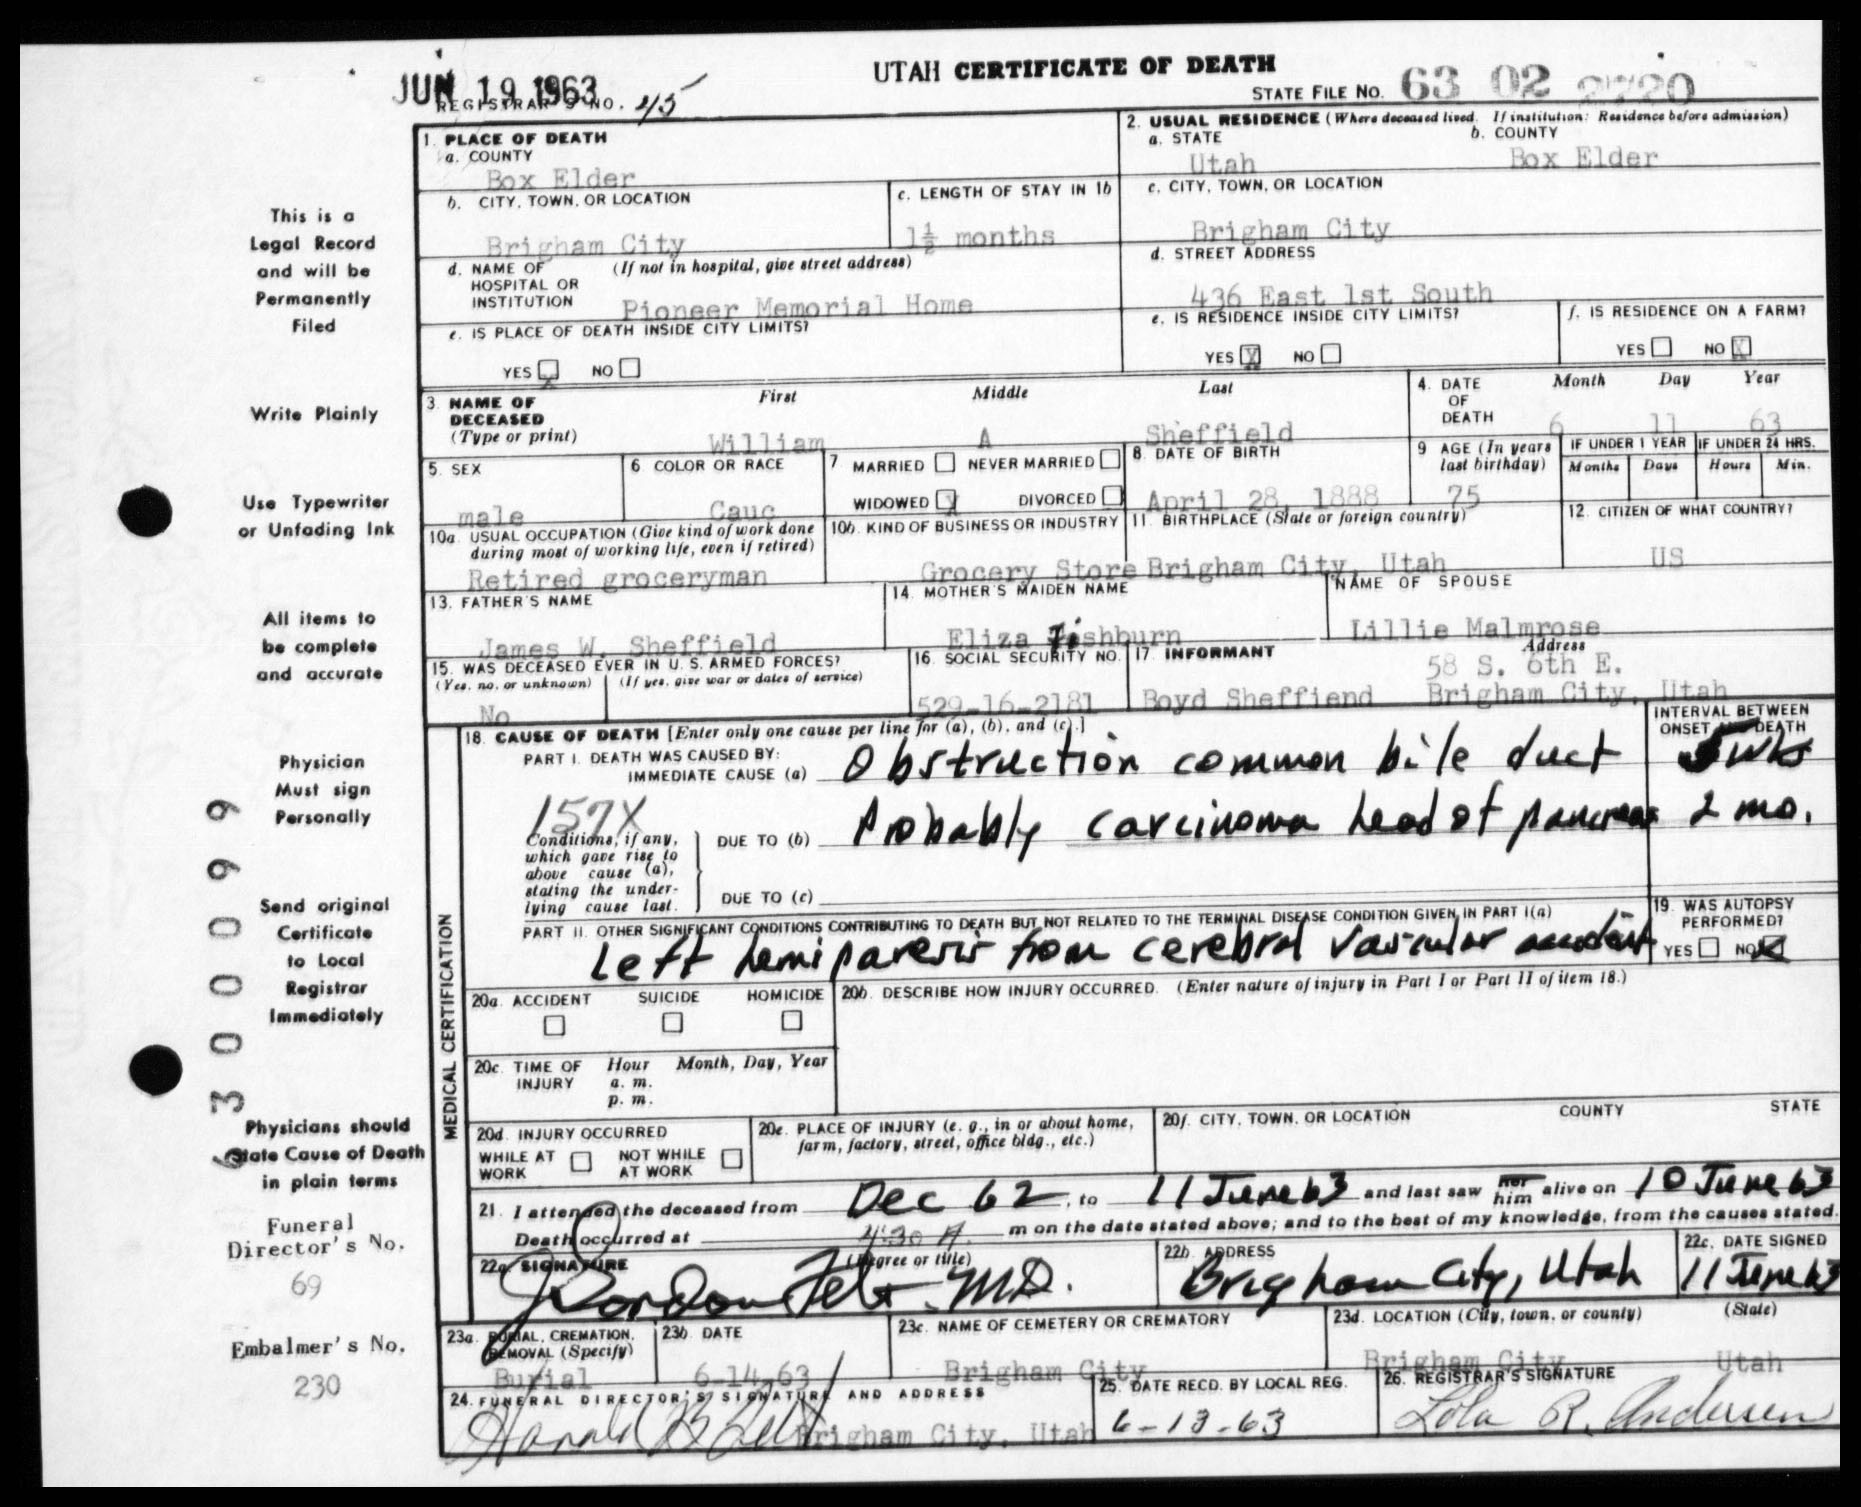 JUN 19 1963
UTAH CERTIFICATE OF DEATH
REGISTRAR'S NO. 45
STATE FILE NO. 63 02 2720
1. PLACE OF DEATH
a. COUNTY
Box Elder
2. USUAL RESIDENCE (Where deceased lived. If institution: Residence before admission)
a. STATE b. COUNTY
Utah Box Elder
b. CITY, TOWN, OR LOCATION
Brigham City
c. LENGTH OF STAY IN 1b
1½ months
c. CITY, TOWN, OR LOCATION
Brigham City
d. NAME OF (If not in hospital, give street address)
HOSPITAL OR
INSTITUTION Pioneer Memorial Home
d. STREET ADDRESS
436 East 1st South
e. IS PLACE OF DEATH INSIDE CITY LIMITS?
YES X NO
e. IS RESIDENCE INSIDE CITY LIMITS?
YES X NO
f. IS RESIDENCE ON A FARM?
YES NO X
3. NAME OF DECEASED
(Type or print)
First Middle Last
William A Sheffield
4. DATE OF DEATH
Month Day Year
6 11 63
5. SEX
male
6 COLOR OR RACE
Cauc
7. MARRIED NEVER MARRIED
WIDOWED X DIVORCED
8. DATE OF BIRTH
April 28, 1888
9 AGE (In years last birthday)
75
IF UNDER 1 YEAR
Months Days
IF UNDER 24 HRS.
Hours Min.
10a. USUAL OCCUPATION (Give kind of work done
during most of working life, even if retired)
Retired groceryman
10b. KIND OF BUSINESS OR INDUSTRY
Grocery Store
11. BIRTHPLACE (State or foreign country)
Brigham City, Utah
12. CITIZEN OF WHAT COUNTRY?
US
13. FATHER'S NAME
James W. Sheffield
14. MOTHER'S MAIDEN NAME
Eliza Fishburn
NAME OF SPOUSE
Lillie Malmrose
15. WAS DECEASED EVER IN U. S. ARMED FORCES?
(Yes, no, or unknown) (If yes, give war or dates of service)
No
16. SOCIAL SECURITY NO.
529-16-2181
17. INFORMANT Address
58 S. 6th E.
Boyd Sheffiend Brigham City, Utah
MEDICAL CERTIFICATION
18. CAUSE OF DEATH [Enter only one cause per line for (a), (b), and (c).]
INTERVAL BETWEEN
ONSET DEATH
PART I. DEATH WAS CAUSED BY:
IMMEDIATE CAUSE (a) Obstruction common bile duct 5 wks
157X
Conditions, if any,
which gave rise to
above cause (a),
stating the under-
lying cause last.
DUE TO (b) Probably carcinoma head of pancreas 2 mo.
DUE TO (c)
PART II. OTHER SIGNIFICANT CONDITIONS CONTRIBUTING TO DEATH BUT NOT RELATED TO THE TERMINAL DISEASE CONDITION GIVEN IN PART I(a)
Left hemiparesis from cerebral vascular accident
19. WAS AUTOPSY
PERFORMED?
YES NO X
20a. ACCIDENT SUICIDE HOMICIDE
20b. DESCRIBE HOW INJURY OCCURRED. (Enter nature of injury in Part I or Part II of item 18.)
20c. TIME OF INJURY
Hour Month, Day, Year
a. m.
p. m.
20d. INJURY OCCURRED
WHILE AT WORK NOT WHILE AT WORK
20e. PLACE OF INJURY (e. g., in or about home,
farm, factory, street, office bldg., etc.)
20f. CITY, TOWN, OR LOCATION COUNTY STATE
21. I attended the deceased from Dec 62, to 11 June 63 and last saw her him alive on 10 June 63
Death occurred at 4:30 A. m on the date stated above; and to the best of my knowledge, from the causes stated.
22a. SIGNATURE (Degree or title)
J Gordon Felt M.D.
22b. ADDRESS
Brigham City, Utah
22c. DATE SIGNED
11 June 63
23a. BURIAL, CREMATION,
REMOVAL (Specify)
Burial
23b. DATE
6-14-63
23c. NAME OF CEMETERY OR CREMATORY
Brigham City
23d. LOCATION (City, town, or county) (State)
Brigham City Utah
24. FUNERAL DIRECTOR'S SIGNATURE AND ADDRESS
Harold B Felt Brigham City, Utah
25. DATE RECD. BY LOCAL REG.
6-13-63
26. REGISTRAR'S SIGNATURE
Lola R. Andersen
This is a
Legal Record
and will be
Permanently
Filed
Write Plainly
Use Typewriter
or Unfading Ink
All items to
be complete
and accurate
Physician
Must sign
Personally
Send original
Certificate
to Local
Registrar
Immediately
Physicians should
State Cause of Death
in plain terms
Funeral
Director's No.
69
Embalmer's No.
230
6300099